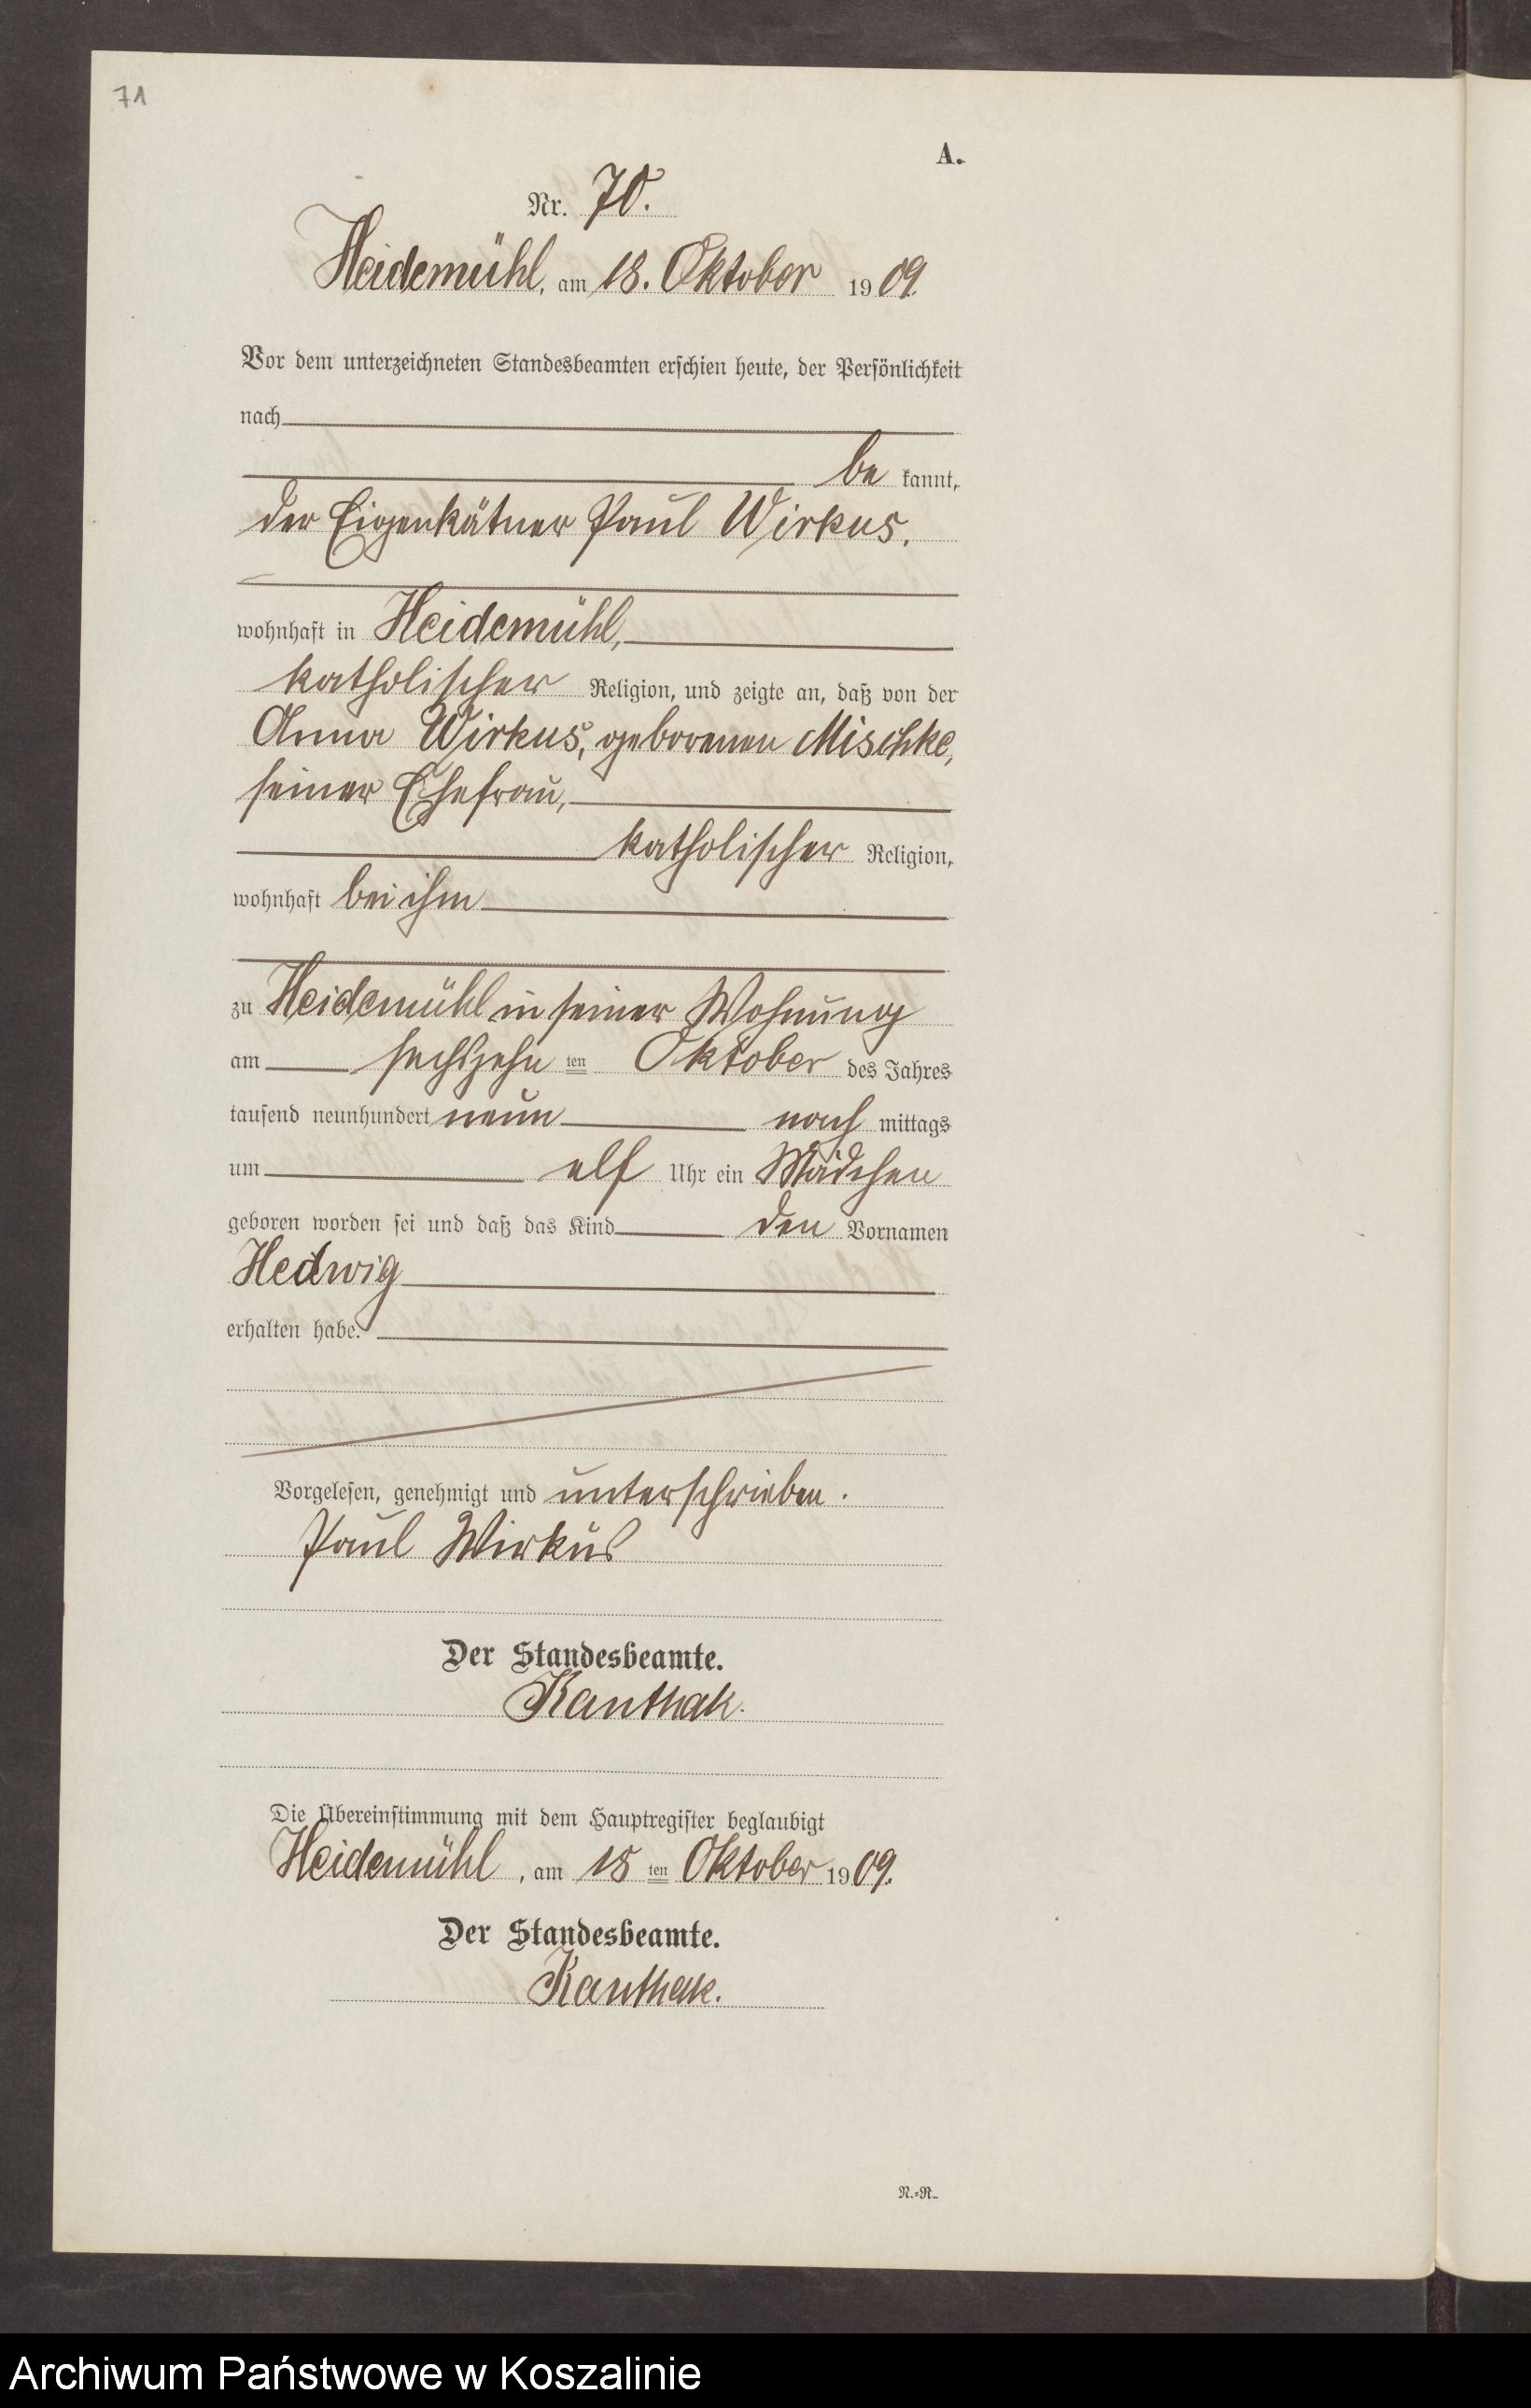 71
A.
Nr. 70.
Heidemühl, am 18. Oktober 1909.
Vor dem unterzeichneten Standesbeamten erschien heute, der Persönlichkeit
nach
be kannt,
der Eigenkätner Paul Wirkus,
wohnhaft in Heidemühl,
katholischer Religion, und zeigte an, daß von der
Anna Wirkus, geborenen Mischke,
seiner Ehefrau,
katholischer Religion,
wohnhaft bei ihm
zu Heidemühl in seiner Wohnung
am sechszehn ten Oktober des Jahres
tausend neunhundert neun nach mittags
um elf Uhr ein Mädchen
geboren worden sei und daß das Kind den Vornamen
Hedwig
erhalten habe.
Vorgelesen, genehmigt und unterschrieben.
Paul Wirkus
Der Standesbeamte.
Kanthak.
Die Übereinstimmung mit dem Hauptregister beglaubigt
Heidemühl, am 18 ten Oktober 1909.
Der Standesbeamte.
Kanthak.
N.=R.
Archiwum Państwowe w Koszalinie